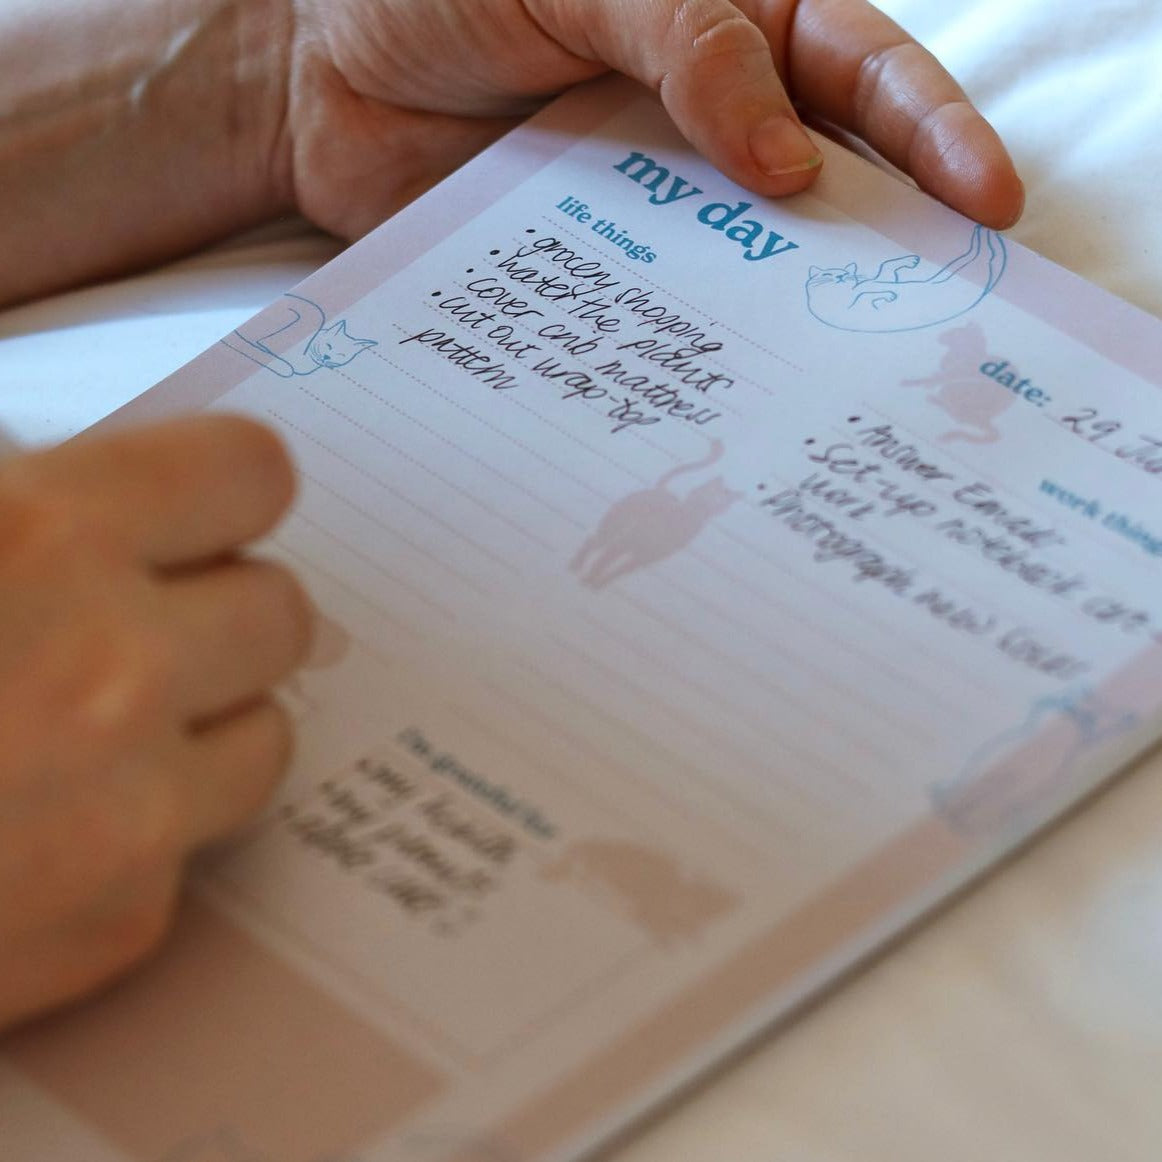 my day
life things
• grocery shopping
• water the plants
• cover cnb mattress
• cut out wrap-top
pattern
date: 29
work things
• Answer Emails
• Set-up notebook
work
• Photograph new
I'm grateful for
my
my